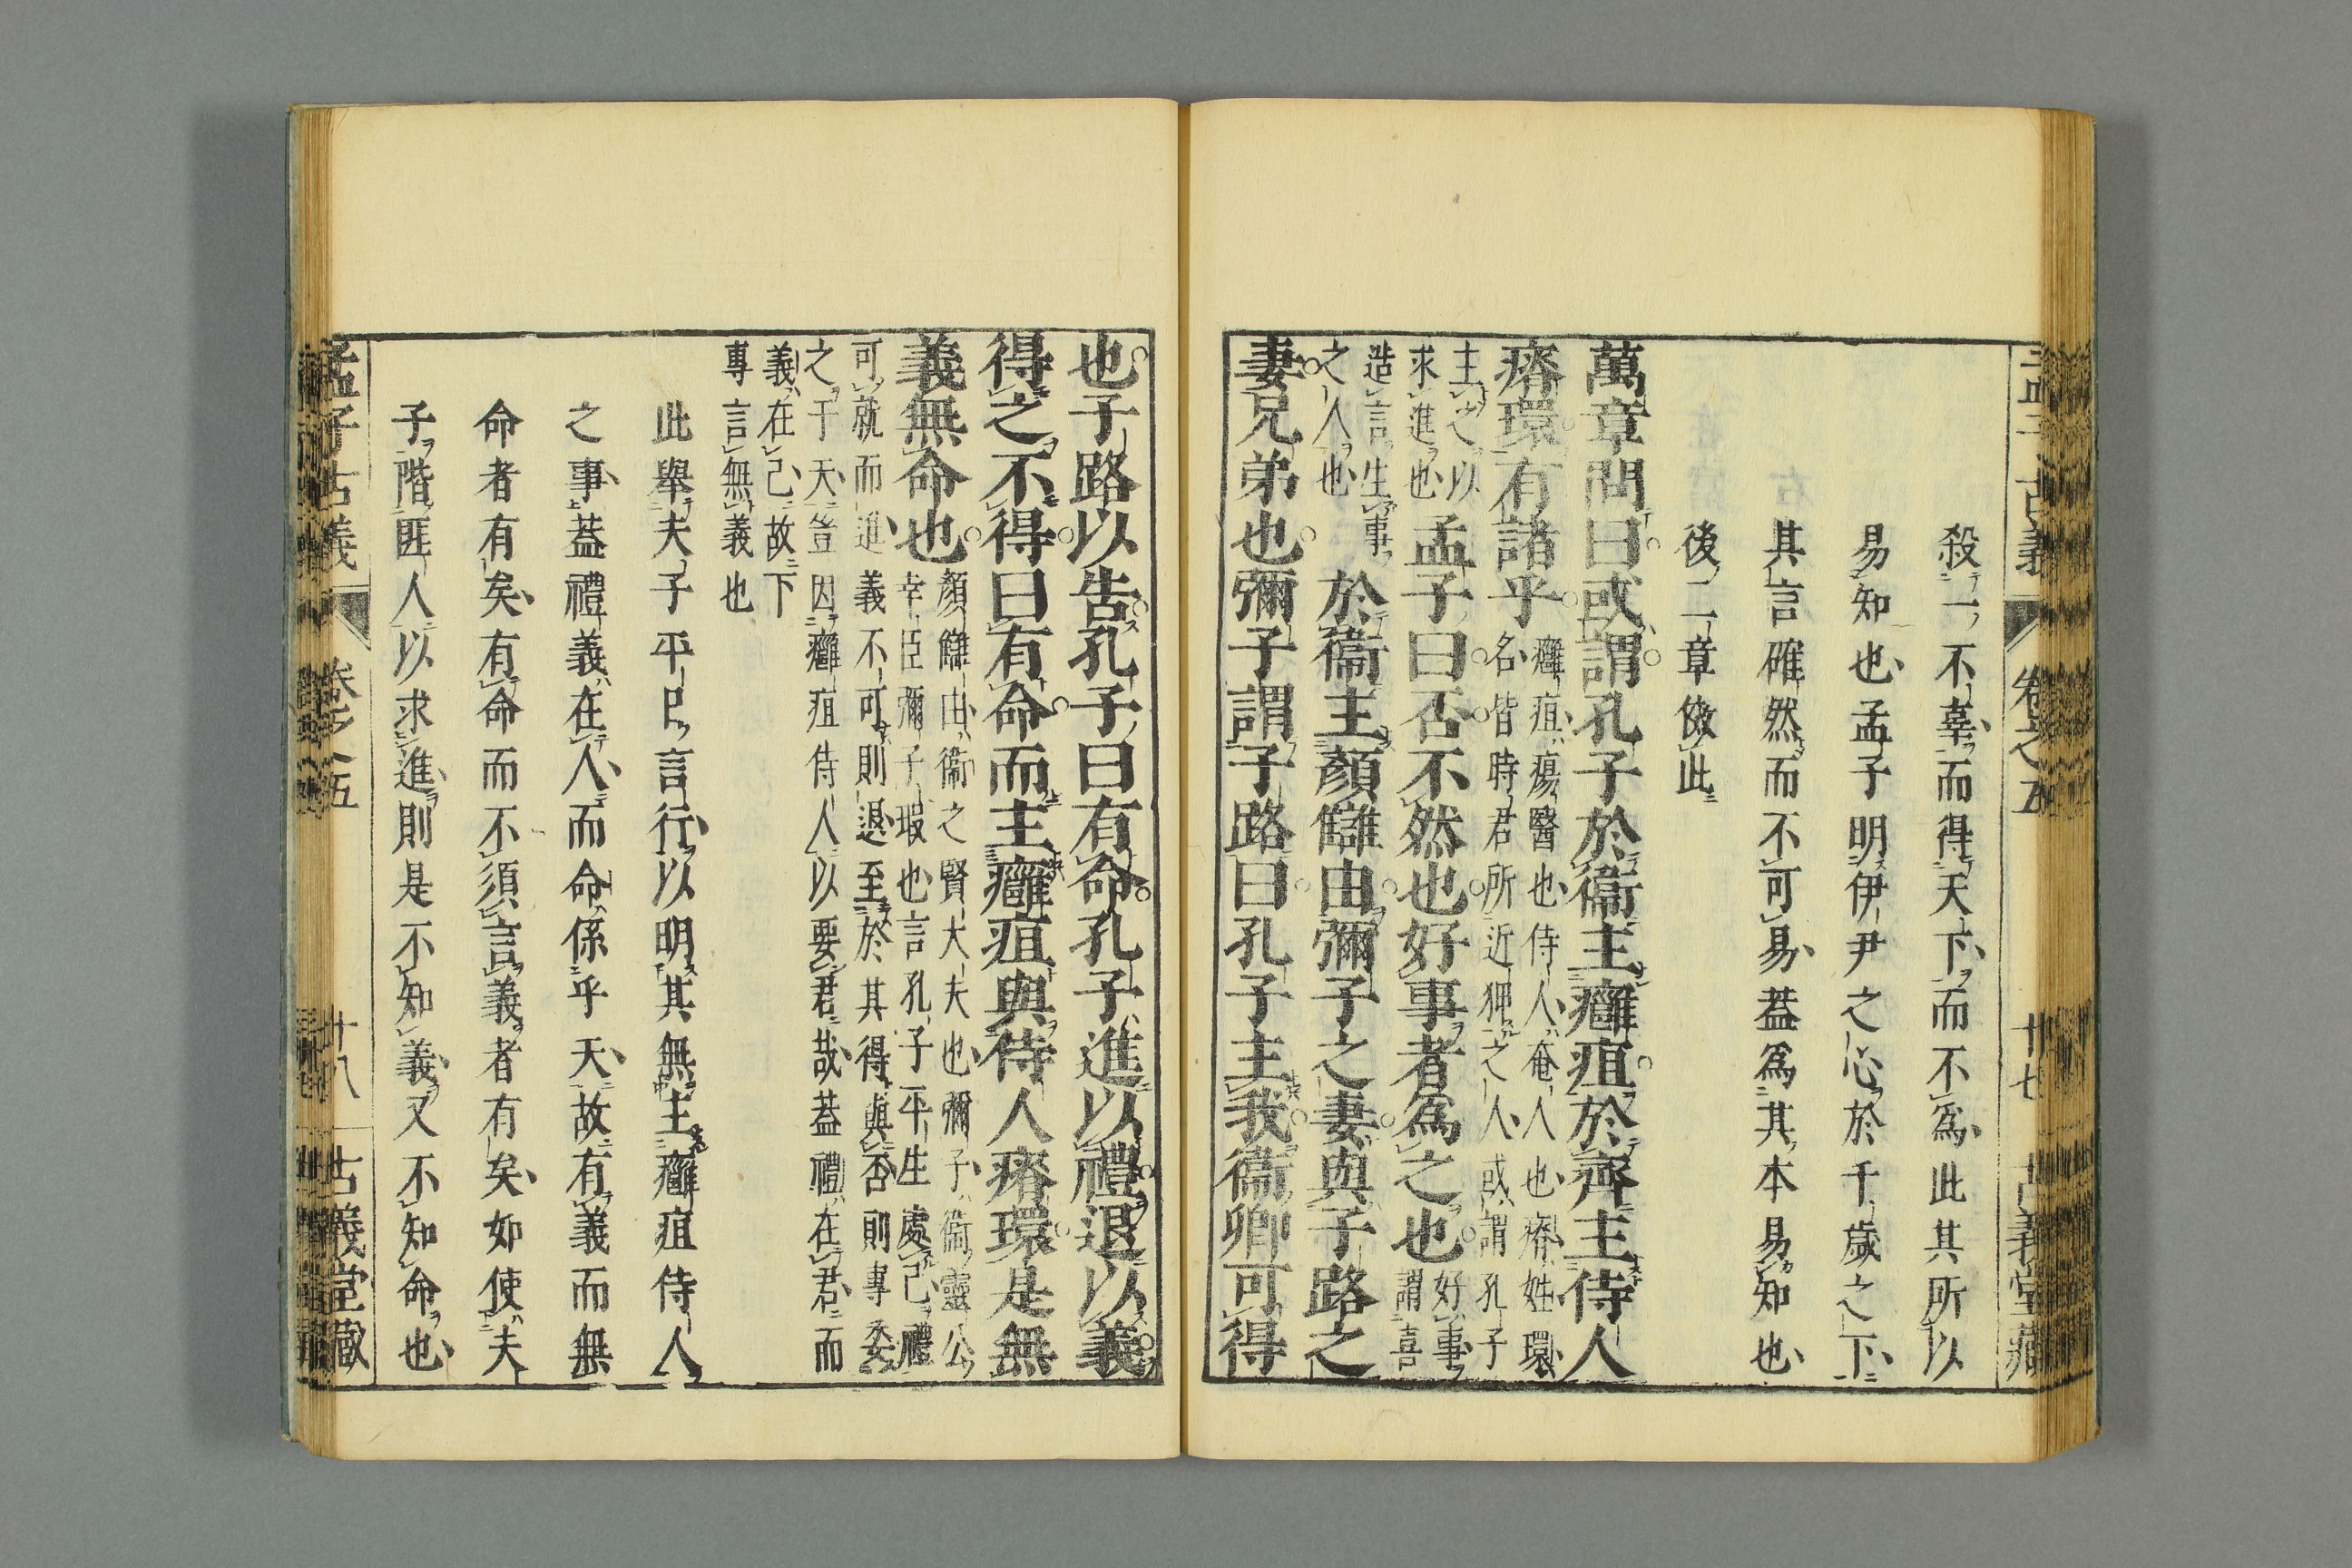 孟子古義 卷之五 十七 古義堂藏
殺一不辜而得天下而不爲此其所以
易知也孟子明伊尹之心於千歲之下
其言確然而不可易蓋爲其本易知也
後二章倣此
萬章問曰或謂孔子於衞主癰疽於齊主侍人
瘠環有諸乎
癰疽瘍醫也侍人奄人也瘠姓環
名皆時君所近狎之人或謂孔子
主之以
求進也
孟子曰否不然也好事者爲之也
好事
謂喜
造言生事
之人也
於衞主顏讎由彌子之妻與子路之
妻兄弟也彌子謂子路曰孔子主我衞卿可得
也子路以告孔子曰有命孔子進以禮退以義
得之不得曰有命而主癰疽與侍人瘠環是無
義無命也
顏讎由衞之賢大夫也彌子衞靈公
幸臣彌子瑕也言孔子平生處己禮
可就而進義不可則退至於其得與否則專委
之于天豈因癰疽侍人以要君哉蓋禮在君而
義在己故下
專言無義也
此舉夫子平日言行以明其無主癰疽侍人
之事蓋禮義在人而命係乎天故有義而無
命者有矣有命而不須言義者有矣如使夫
子階匪人以求進則是不知義又不知命也
孟子古義 卷之五 十八 古義堂藏